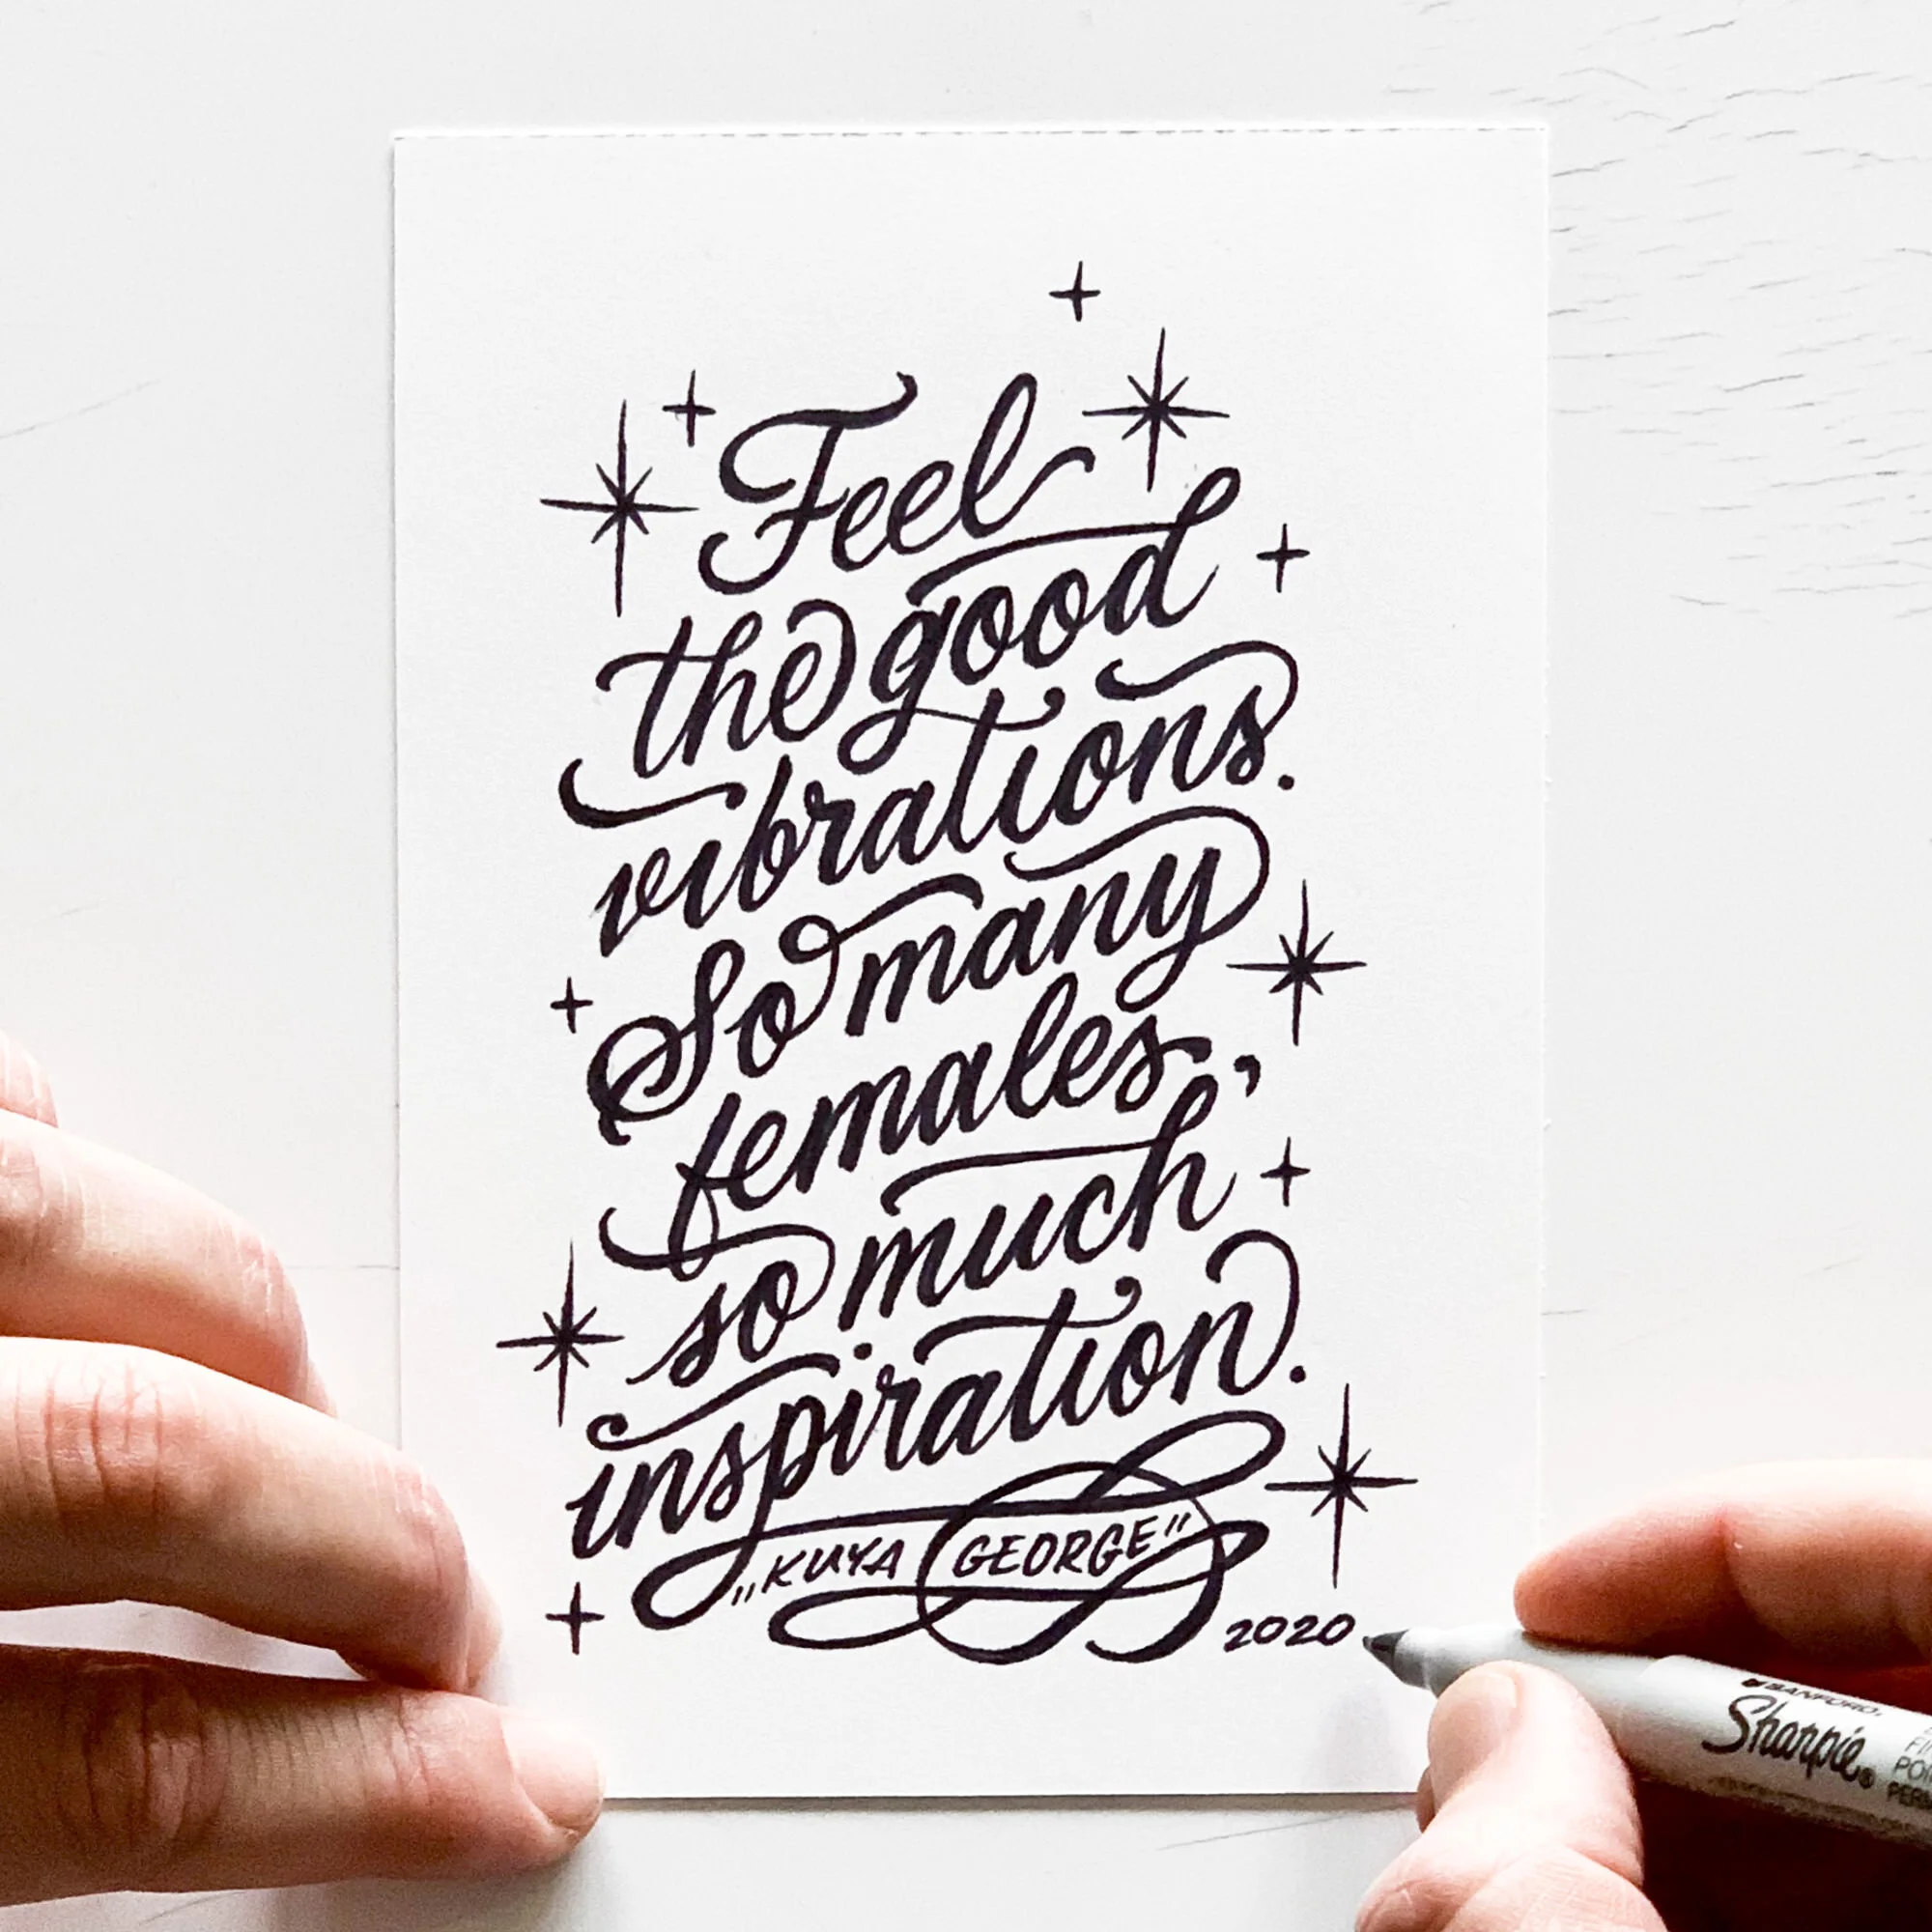 Feel
the good
vibrations.
So many
females,
so much
inspiration.
„KUYA GEORGE"
2020
SANFORD®
Sharpie®